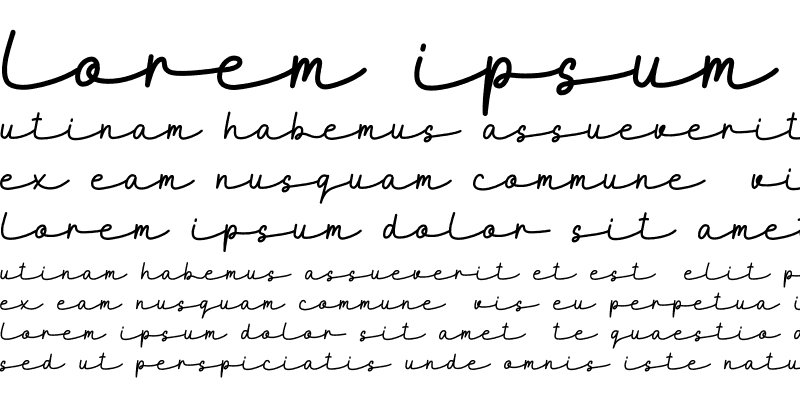 lorem ipsum
utinam habemus assueverit
ex eam nusquam commune vi
lorem ipsum dolor sit ame
utinam habemus assueverit et est elit p
ex eam nusquam commune vis eu perpetua i
lorem ipsum dolor sit amet te quaestio
sed ut perspiciatis unde omnis iste natu